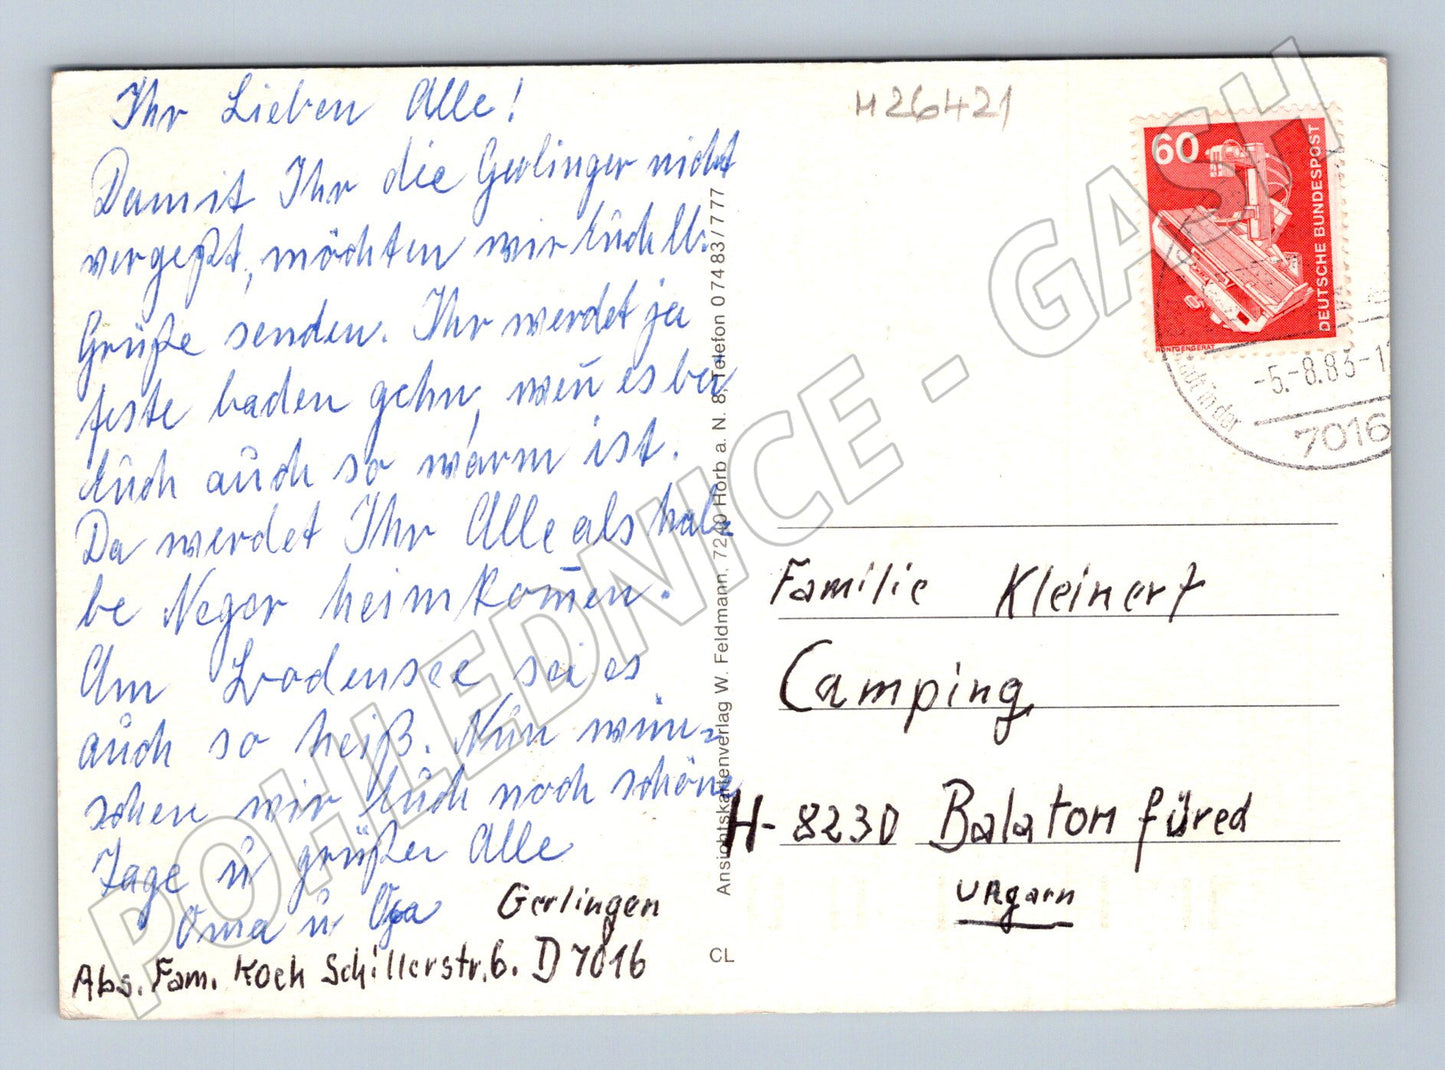 Ihr Lieben Alle!
Damit Ihr die Gerlinger nicht
vergeßt, möchten wir Euch lb.
Grüße senden. Ihr werdet ja
feste baden gehn, wen̄ es bei
Euch auch so warm ist.
Da werdet Ihr Alle als hal-
be Neger heimkom̄en.
Am Bodensee sei es
auch so heiß. Nun wün-
schen wir Euch noch schöne
Tage u grüßen Alle
Oma u Opa
Gerlingen
Abs. Fam. Koch Schillerstr. 6. D 7016
Ansichtskartenverlag W. Feldmann, 7240 Horb a. N. 8, Telefon 07483/777
CL
M26421
60
DEUTSCHE BUNDESPOST
RÖNTGENGERÄT
-5.-8.83-1
7016
Familie Kleinert
Camping
H-8230 Balaton füred
Ungarn
POHLEDNICE - GASH